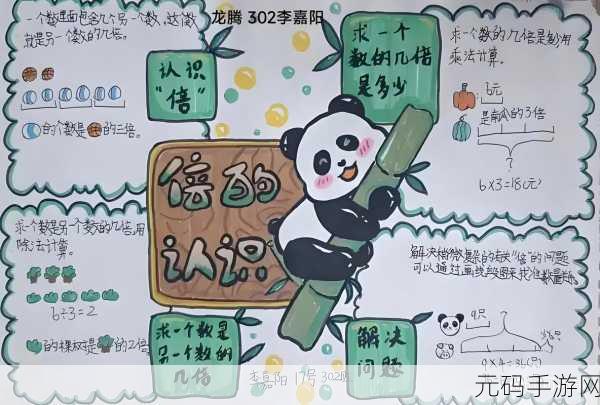 龙腾 302李嘉阳
一个数里面包含几个另一个数,这个数
就是另一个数的几倍。
的个数是的三倍。
认识
"倍"
求一个
数的几倍
是多少
求一个数的几倍是多少用
乘法计算。
6元
是南瓜的3倍
?
6×3=18(元)
倍的
认识
求一个数是另一个数的几倍,用
除法计算。
6÷3=2
的棵树是的2倍
求一个数是
另一个数的
几倍
解决
问题
解决稍微复杂的有关"倍"的问题
可以通过画线段图来找
9只
?
李嘉阳 17号 302班
元码手游网